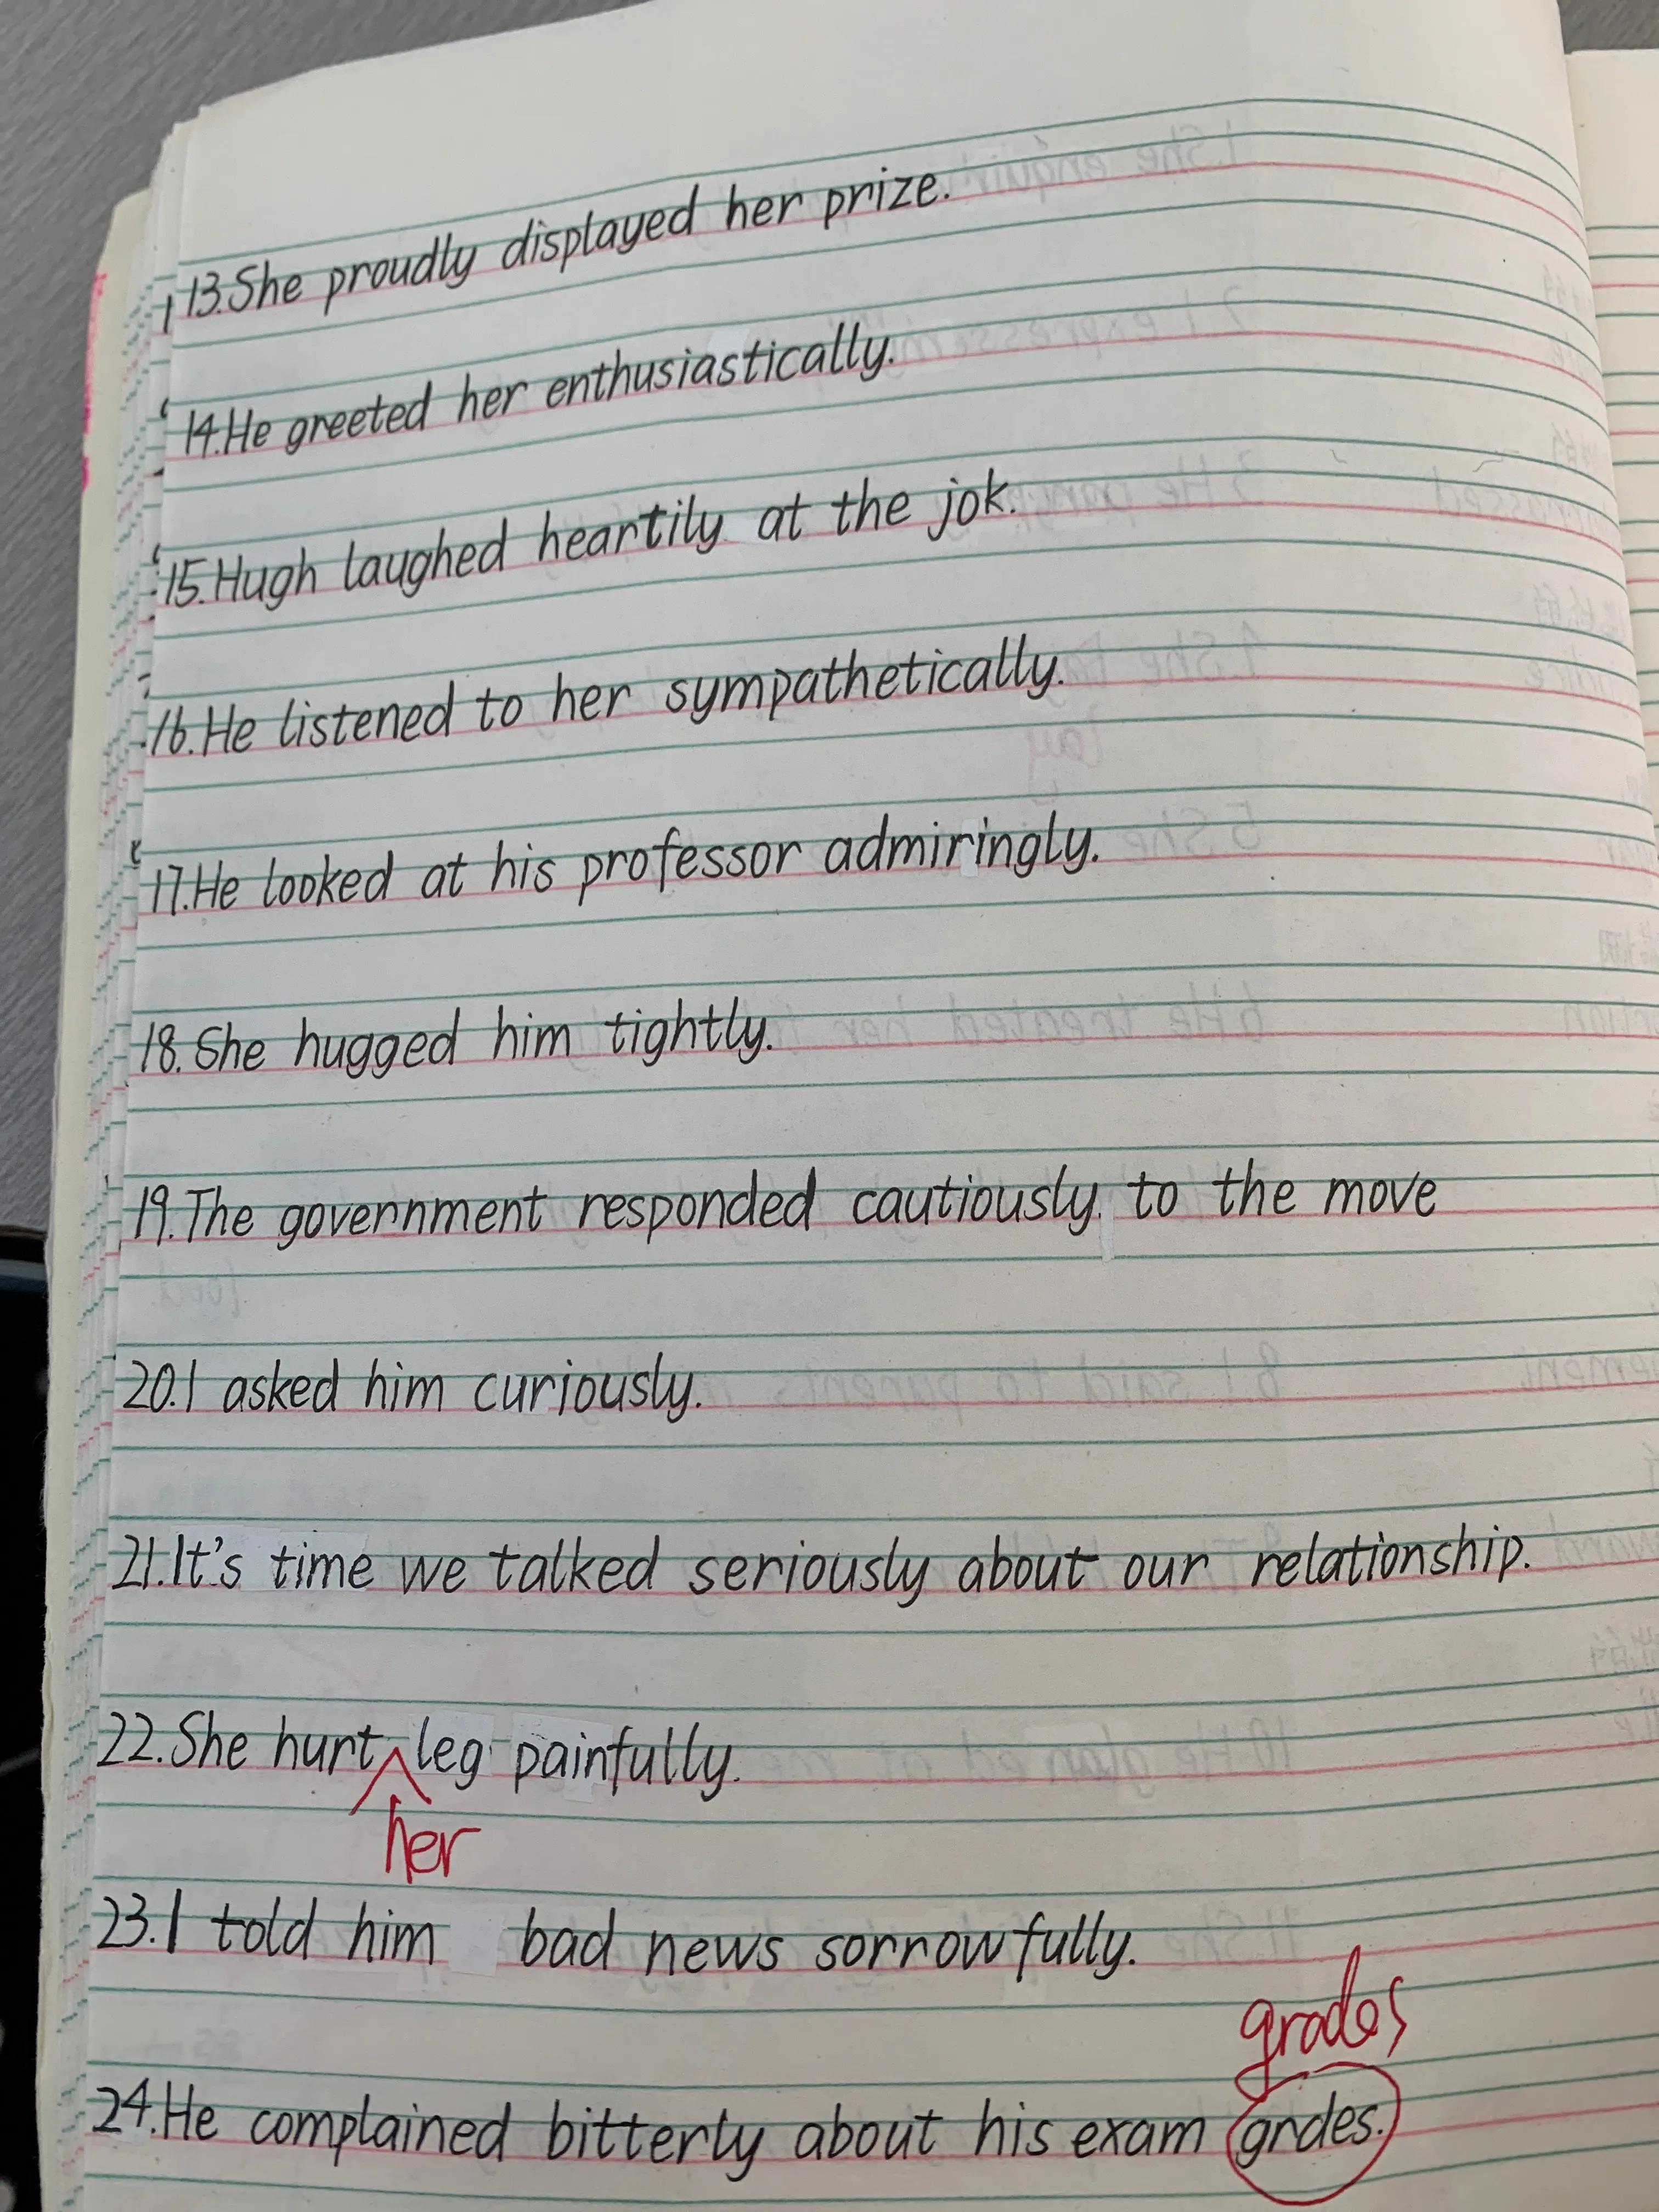 13.She proudly displayed her prize.
14.He greeted her enthusiastically.
15.Hugh laughed heartily at the jok.
16.He listened to her sympathetically.
17.He looked at his professor admiringly.
18.She hugged him tightly.
19.The government responded cautiously to the move
20.I asked him curiously.
21.It's time we talked seriously about our relationship.
22.She hurt leg painfully.
her
23.I told him bad news sorrowfully.
grades
24.He complained bitterly about his exam grdes.